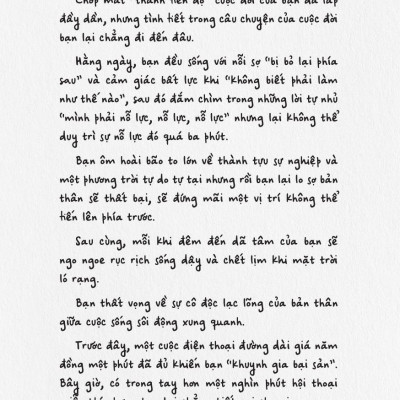 Chớp mắt "thanh tiến độ" cuộc đời của bạn đã lấp
đầy dần, nhưng tình tiết trong câu chuyện của cuộc đời
bạn lại chẳng đi đến đâu.
Hằng ngày, bạn đều sống với nỗi sợ "bị bỏ lại phía
sau" và cảm giác bất lực khi "không biết phải làm
như thế nào", sau đó đắm chìm trong những lời tự nhủ
"mình phải nỗ lực, nỗ lực, nỗ lực" nhưng lại không thể
duy trì sự nỗ lực đó quá ba phút.
Bạn ôm hoài bão to lớn về thành tựu sự nghiệp và
một phương trời tự do tự tại nhưng rồi bạn lại lo sợ bản
thân sẽ thất bại, sẽ đứng mãi một vị trí không thể
tiến lên phía trước.
Sau cùng, mỗi khi đêm đến dã tâm của bạn sẽ
ngo ngoe rục rịch sống dậy và chết lịm khi mặt trời
ló rạng.
Bạn thất vọng về sự cô độc lạc lõng của bản thân
giữa cuộc sống sôi động xung quanh.
Trước đây, một cuộc điện thoại đường dài giá năm
đồng một phút đã đủ khiến bạn "khuynh gia bại sản".
Bây giờ, có trong tay hơn một nghìn phút hội thoại